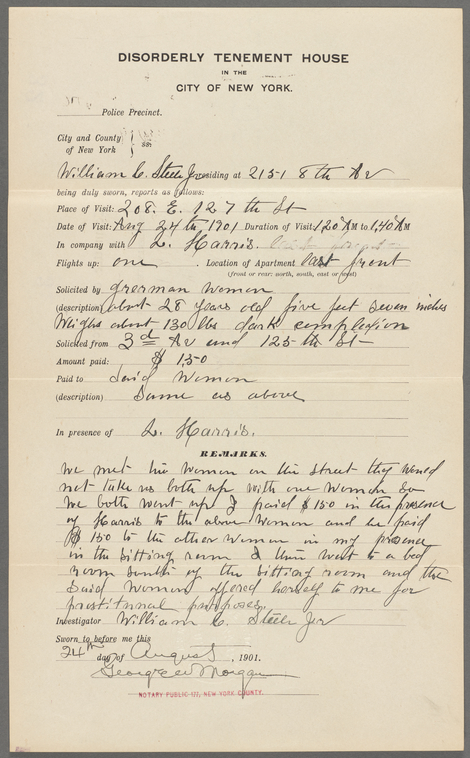 DISORDERLY TENEMENT HOUSE
IN THE
CITY OF NEW YORK.
Police Precinct.
City and County
of New York } ss:
William C. Steele Jr residing at 2151 8th Av
being duly sworn, reports as follows:
Place of Visit: 208. E. 127th St
Date of Visit: Aug 24th 1901 Duration of Visit: 1,20 AM to 1,40 AM
In company with L. Harris.
Flights up: one . Location of Apartment east front
(front or rear; north, south, east or west)
Solicited by german woman
(description) about 28 years old five feet seven inches
Weighs about 130 lbs dark complexion
Solicited from 3d Av and 125th St
Amount paid: $ 1,50
Paid to said woman
(description) same as above
In presence of L. Harris.
REMARKS.
We met two women on the street they would
not take us both up with one woman so
we both went up I paid $1 50 in the presence
of Harris to the above woman and he paid
$1 50 to the other woman in my presence
in the sitting room I then went to a bed
room south of the sitting room and the
said woman offered herself to me for
purposes.
Investigator William C. Steele Jr
Sworn to before me this
24th day of August , 1901.
George W Morgan
NOTARY PUBLIC NEW YORK COUNTY.